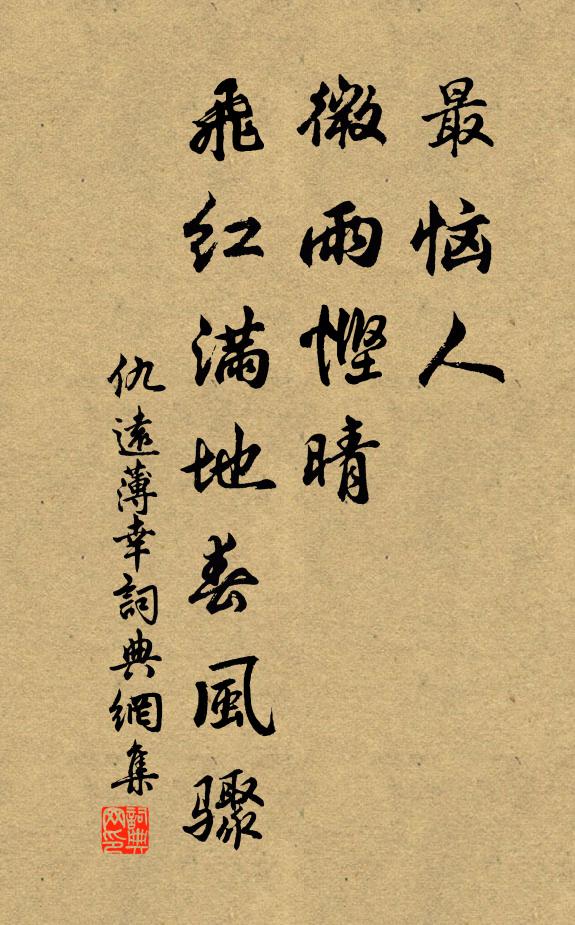 最恼人
微雨悭晴
飛红满地春風骤
仇遠薄幸詞典網集
詞典网印